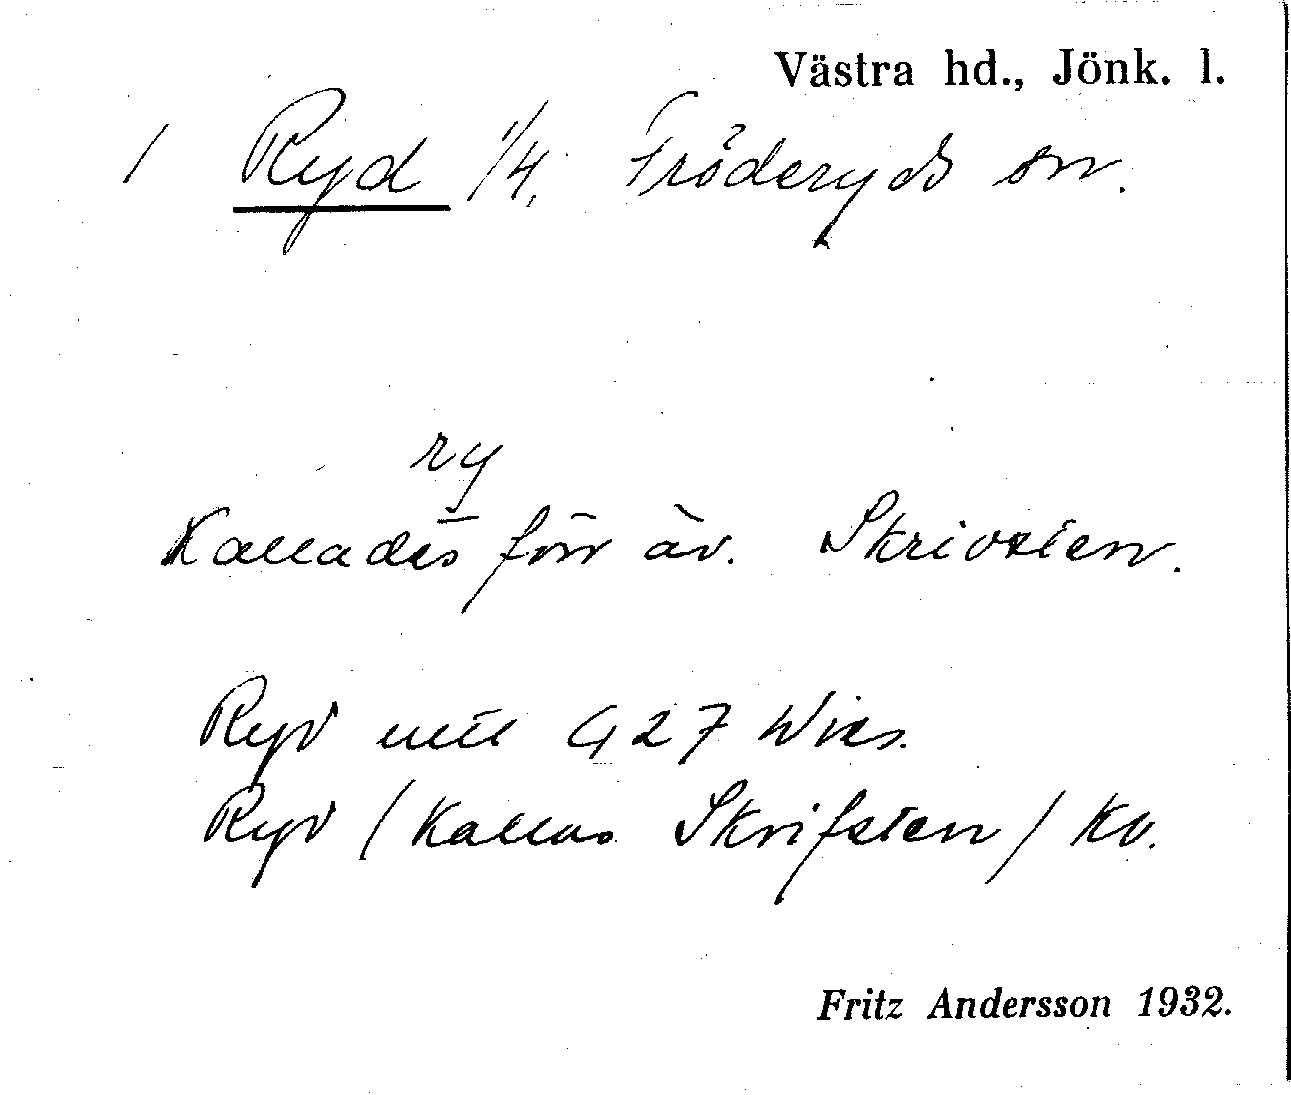 Västra hd., Jönk. l.
1 Ryd 1/4. Fröderyds sn.
ry
Kallades förr äv. Skrivsten.
Ryd utt G 27 Wies.
Ryd (kallas Skrifsten) Kv.
Fritz Andersson 1932.